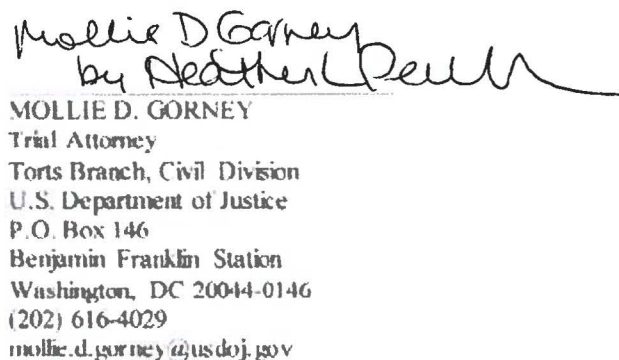 Mollie D Gorney
by Heather L
MOLLIE D. GORNEY
Trial Attorney
Torts Branch, Civil Division
U.S. Department of Justice
P.O. Box 146
Benjamin Franklin Station
Washington, DC 20044-0146
(202) 616-4029
mollie.d.gorney@usdoj.gov